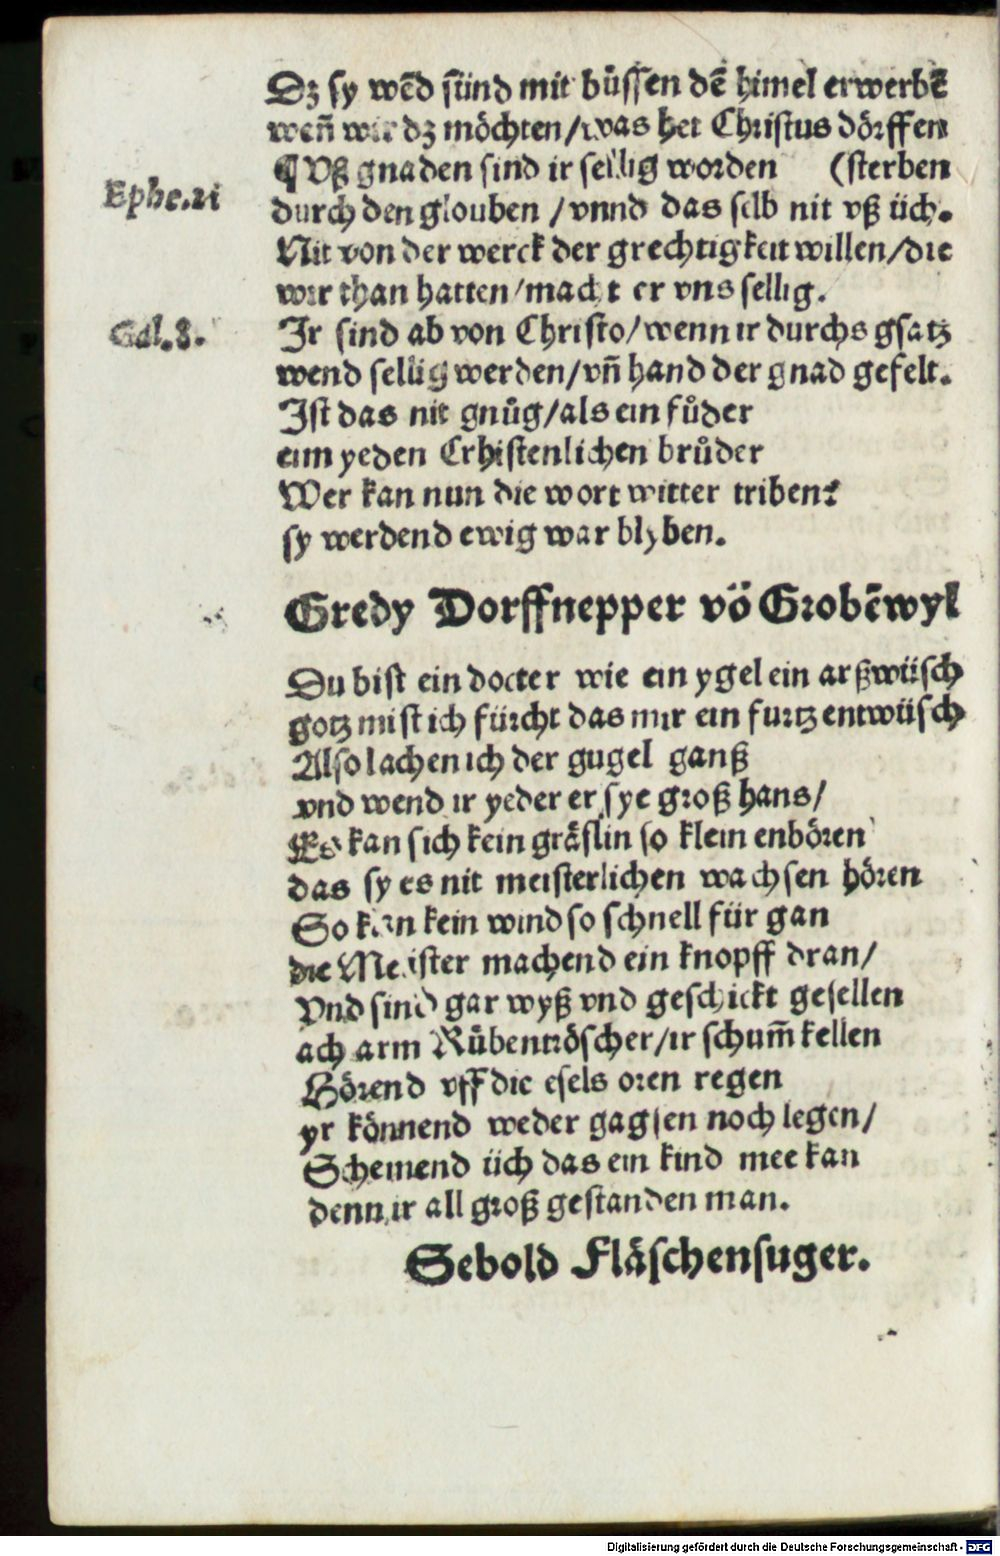 Dz sy wēd sünd mit bůssen dē himel erwerbē
weñ wir dz möchten/was het Christus dörffen
¶ Vß gnaden sind ir sellig worden (sterben
Ephe.ii
durch den glouben /vnnd das selb nit vß üch.
Nit von der werck der grechtigkeit willen/die
wir than hatten/macht er vns sellig.
Gal.8.
Ir sind ab von Christo/wenn ir durchs gsatz
wend sellig werden/vñ hand der gnad gefelt.
Ist das nit gnůg/als ein fůder
eim yeden Crhistenlichen brůder
Wer kan nun die wort witter triben?
sy werdend ewig war blyben.
Gredy Dorffnepper vō Grobēwyl
Du bist ein docter wie ein ygel ein arßwüsch
gotz mist ich fürcht das mir ein furtz entwüsch
Also lachen ich der gugel ganß
vnd wend ir yeder er sye groß hans/
Es kan sich kein gräslin so klein enbören
das sy es nit meisterlichen wachsen hören
So kan kein wind so schnell für gan
die Meister machend ein knopff dran/
Vnd sind gar wyß vnd geschickt gesellen
ach arm Růbentröscher/ir schum̄ kellen
Hörend vff die esels oren regen
yr könnend weder gagsen noch legen/
Schemend üch das ein kind mee kan
denn ir all groß gestanden man.
Sebold Fläschensuger.
Digitalisierung gefördert durch die Deutsche Forschungsgemeinschaft - DFG